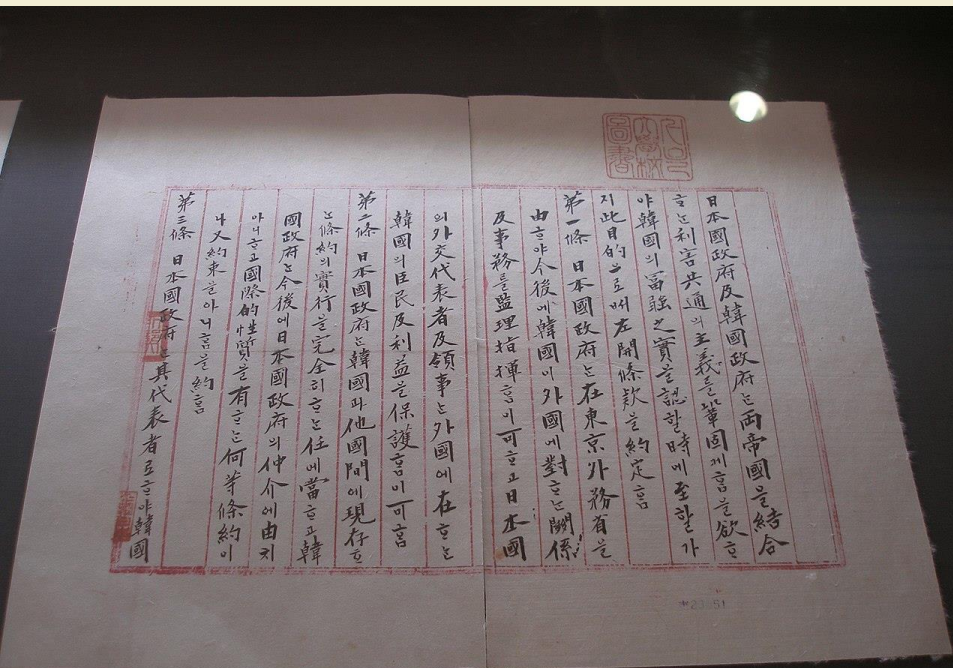 日本國政府及韓國政府는兩帝國을結合
ᄒᆞ는利害共通의主義를鞏固케ᄒᆞᆷ을欲ᄒᆞ
야韓國의富强之實을認ᄒᆞᆯ時에至ᄒᆞᆯ가
지此目的으로ᄡᅥ左開條欵을約定ᄒᆞᆷ
第一條 日本國政府는在東京外務省을
由ᄒᆞ야今後에韓國이外國에對ᄒᆞ는關係
及事務를監理指揮ᄒᆞᆷ이可ᄒᆞ고日本國
의外交代表者及領事는外國에在ᄒᆞ는
韓國의臣民及利益을保護ᄒᆞᆷ이可ᄒᆞᆷ
第二條 日本國政府는韓國과他國間에現存ᄒᆞ
는條約의實行을完全히ᄒᆞ는任에當ᄒᆞ고韓
國政府는今後에日本國政府의仲介에由치
아니ᄒᆞ고國際的性質을有ᄒᆞ는何等條約이
나又約束을아니ᄒᆞᆷ을約ᄒᆞᆷ
第三條 日本國政府는其代表者로ᄒᆞ야韓國